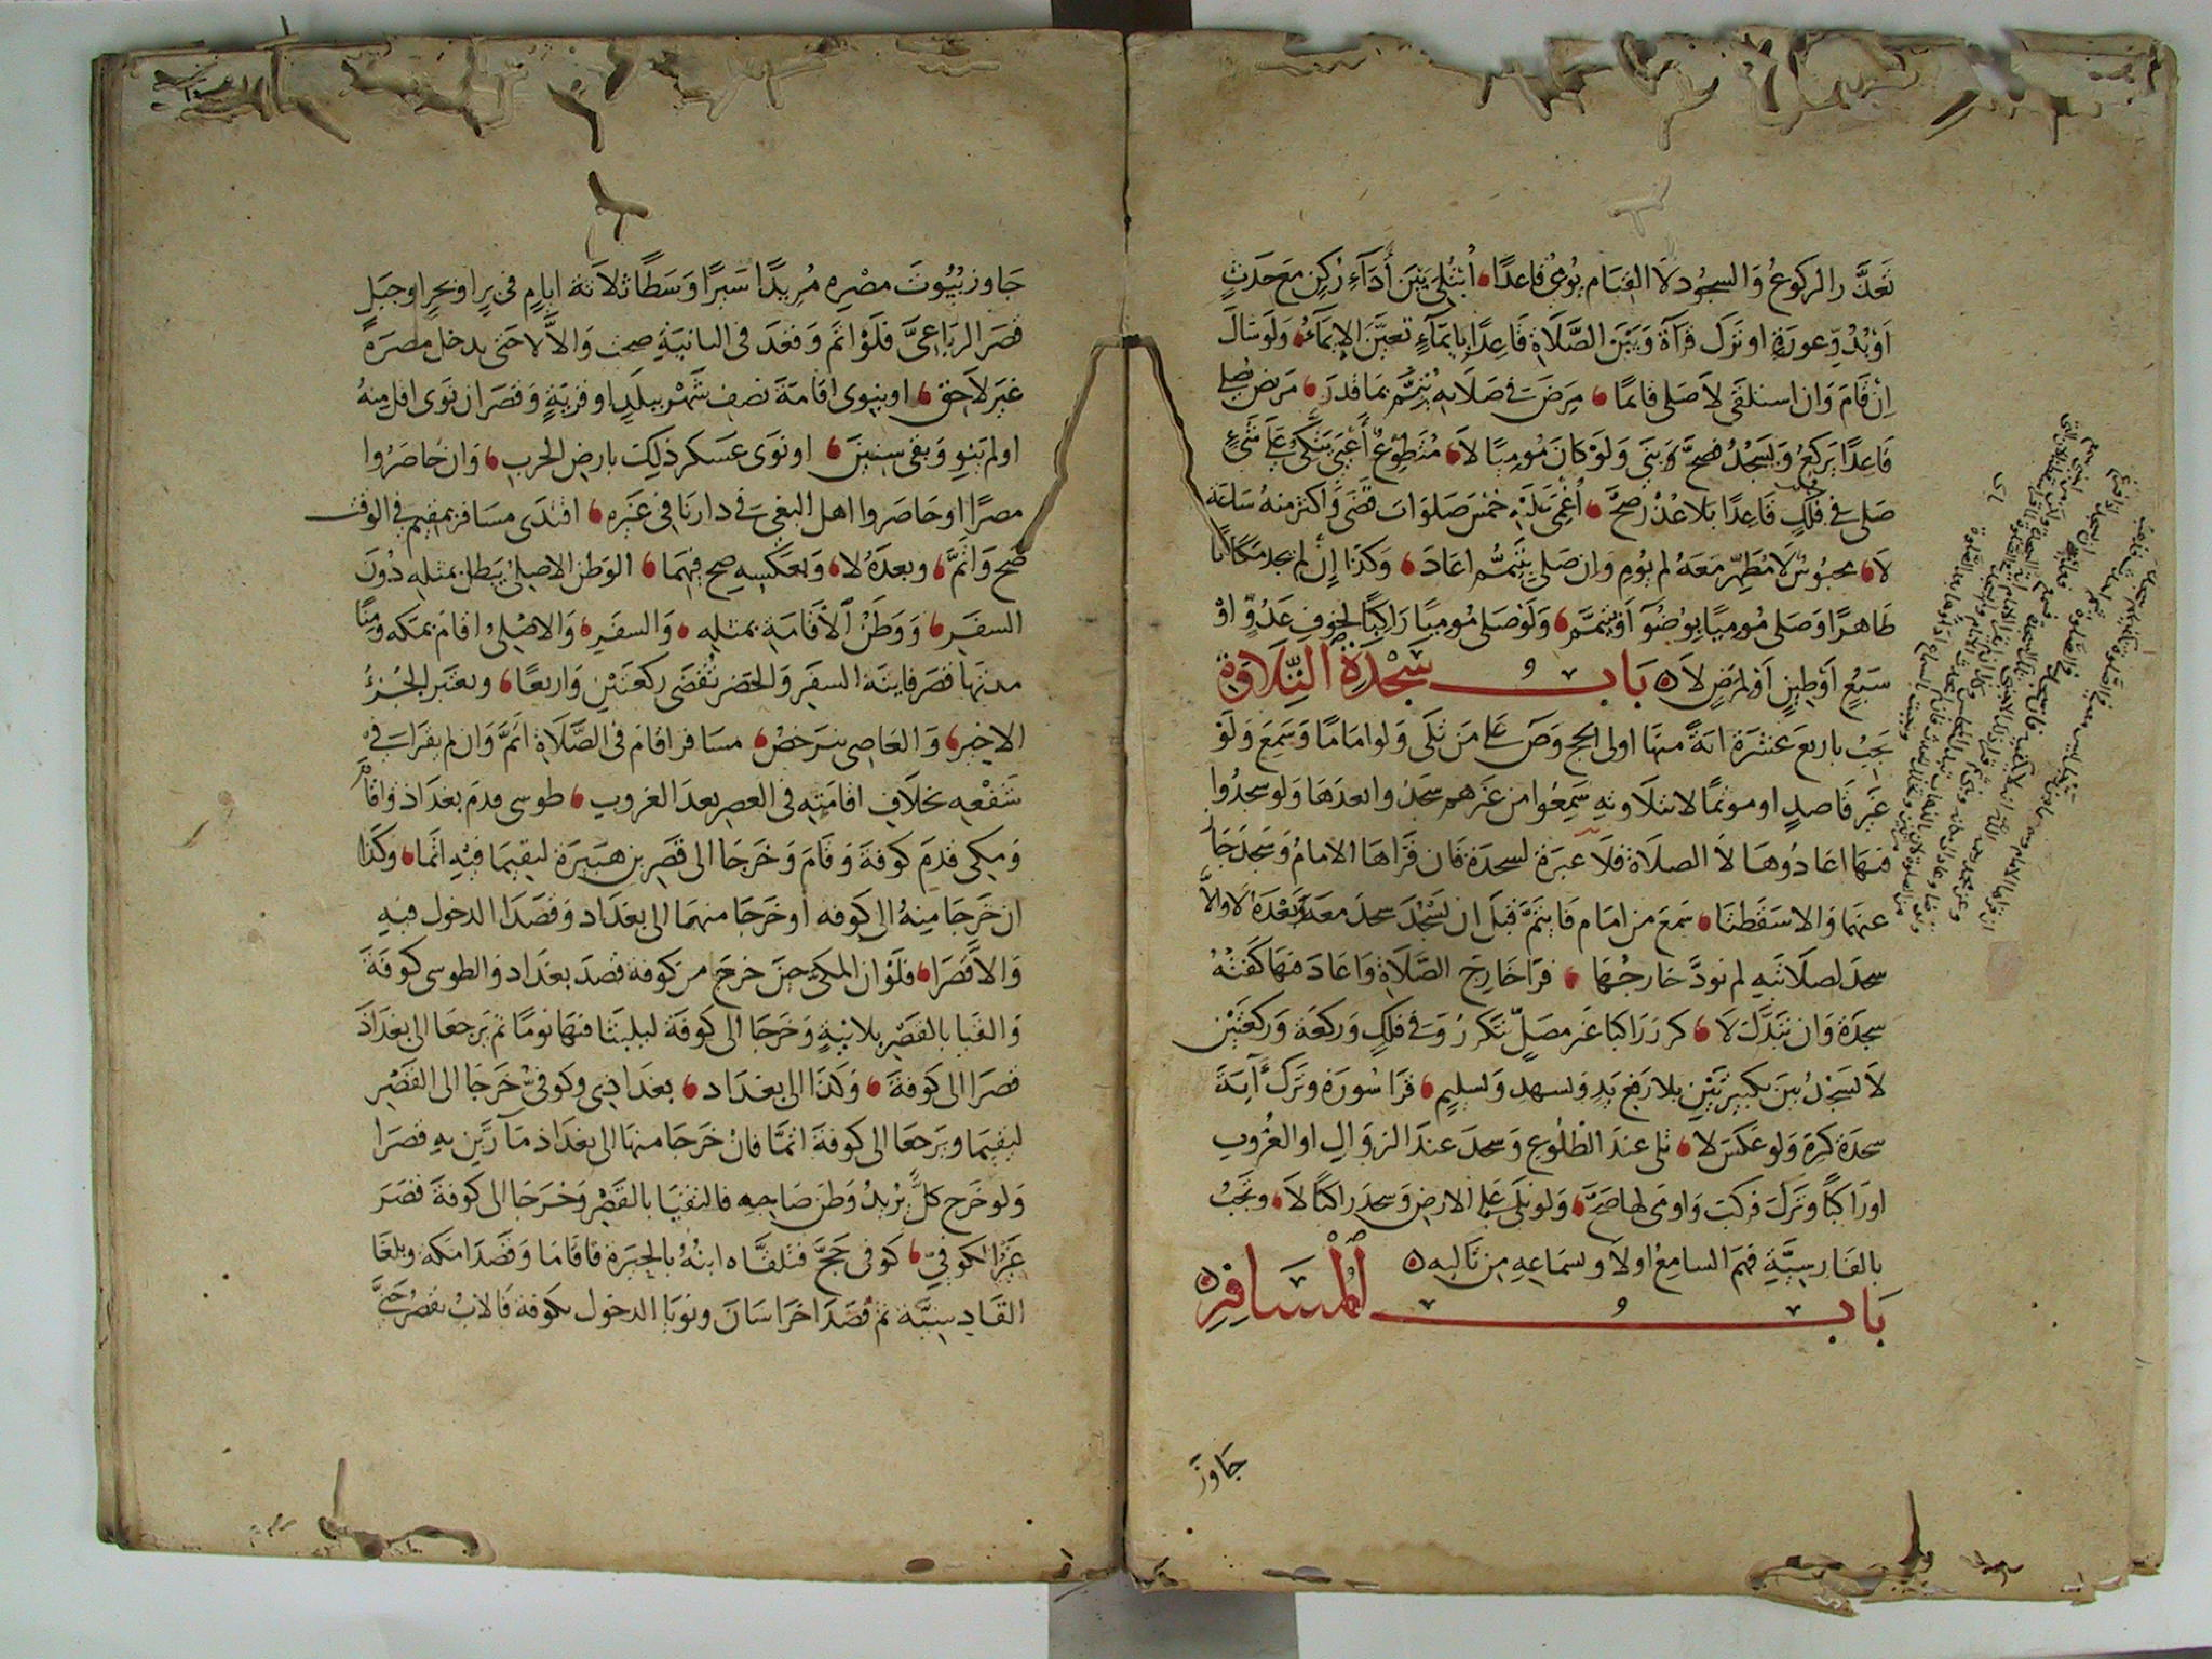 تعذر الركوع والسجود لا القيام يومئ قاعدا ابتلي بين أداء ركن مع حدث
أو بدو عورة او ترك قراة وبين الصلاة قاعدا بايماء تعين الإيماء ولو سال
إن قام وان استلقى لا صلى قائما مرض في صلاته يتم بما قدر مريض يصلي
قاعدا يركع ويسجد فصح بنى ولو كان موميا لا متطوع أعيى يتكئ على شيء
صلى في فلك قاعدا بلا عذر صح أغمي عليه خمس صلوات قضى واكثر منه ساعة
لا محبوس لا مطهر معه لم يوم وان صلى بتيمم اعاد وكذا إن لم يجد مكانا
طاهرا وصلى موميا بوضو أو تيمم ولو صلى موميا راكبا لخوف عدو او
سبع أو طين أو لمرض لا باب سجدة التلاوة
يجب باربع عشرة اية منها اولى الحج وص على من تلى ولو اماما وسمع ولو
غير قاصد او موتما لا بتلاوته سمعوا من غيرهم سجدوا بعدها ولو سجدوا
فيها اعادوها لا الصلاة فلا عبرة لسجدة فان قراها الامام وسجد
عنها والا سقطتا سمع من امام فايتم قبل ان يسجد سجد معه وبعده لا والا
سجد لصلاتيه لم تود خارجها قرا خارج الصلاة واعاد فيها كفته
سجدة وان تبدلت لا كرر راكبا غير مصل تتكرر وفي فلك وركعة وركعتين
لا يسجد بين تكبيرتين بلا رفع يد وتشهد وتسليم قرا سورة وترك آية
سجدة كره ولو عكس لا تلى عند الطلوع وسجد عند الزوال او الغروب
او راكبا وترك فركب واومى لها صح ولو تلى على الارض وسجد راكبا لا وتجب
بالفارسية فهم السامع اولا وسماعه من تاليه
باب المسافر
جاوز
جاوز بيوت مصره مريدا سيرا وسطا ثلاثة ايام في بر او بحر او جبل
قصر الرباعي فلو اتم وقعد في الثانية صحت والا لا حتى يدخل مصره
غير لاحق او ينوي اقامة نصف شهر ببلد او قرية وقصر ان نوى اقل منه
او لم ينو وبقي سنين او نوى عسكر ذلك بارض الحرب وان حاصروا
مصرا او حاصروا اهل البغي في دارنا في غيره اقتدى مسافر بمقيم في الوقت
صح واتم وبعده لا وبعكسه صح فيهما الوطن الاصلي يبطل بمثله دون
السفر ووطن الأقامة بمثله والسفر والاصلي اقام بمكة ومنا
مدتها قصر فايتة السفر والحضر تقضى ركعتين واربعا ويعتبر الجزء
الاخير والعاصي يترخص مسافر اقام في الصلاة اتم وان لم يقرا في
شفعه بخلاف اقامته في العصر بعد الغروب طوسي قدم بغداد واقام
ومكي قدم كوفة وقام وخرجا الى قصر بن هبيرة ليقيما فيه اتما وكذا
ان خرجا منه الى كوفه أو خرجا منهما الى بغداد وقصدا الدخول فيه
والا قصرا فلو ان المكي حين خرج من كوفة قصد بغداد والطوسي كوفة
والتقيا بالقصر بلا نية وخرجا الى كوفة ليلبثا فيها يوما ثم يرجعا الى بغداد
قصرا الى كوفة وكذا الى بغداد بغدادي وكوفي خرجا الى القصر
ليقيما ويرجعا الى كوفة اتما فان خرجا منها الى بغداد مارين به قصرا
ولو خرج كل يريد وطن صاحبه فالتقيا بالقصر وخرجا الى كوفة قصر
غير الكوفي كوفي حج فتلقاه ابنه بالحيرة فاقاما وقصدا مكة وبلغا
القادسية ثم قصدا خراسان ونويا الدخول بكوفة فالاب يقصر حتى